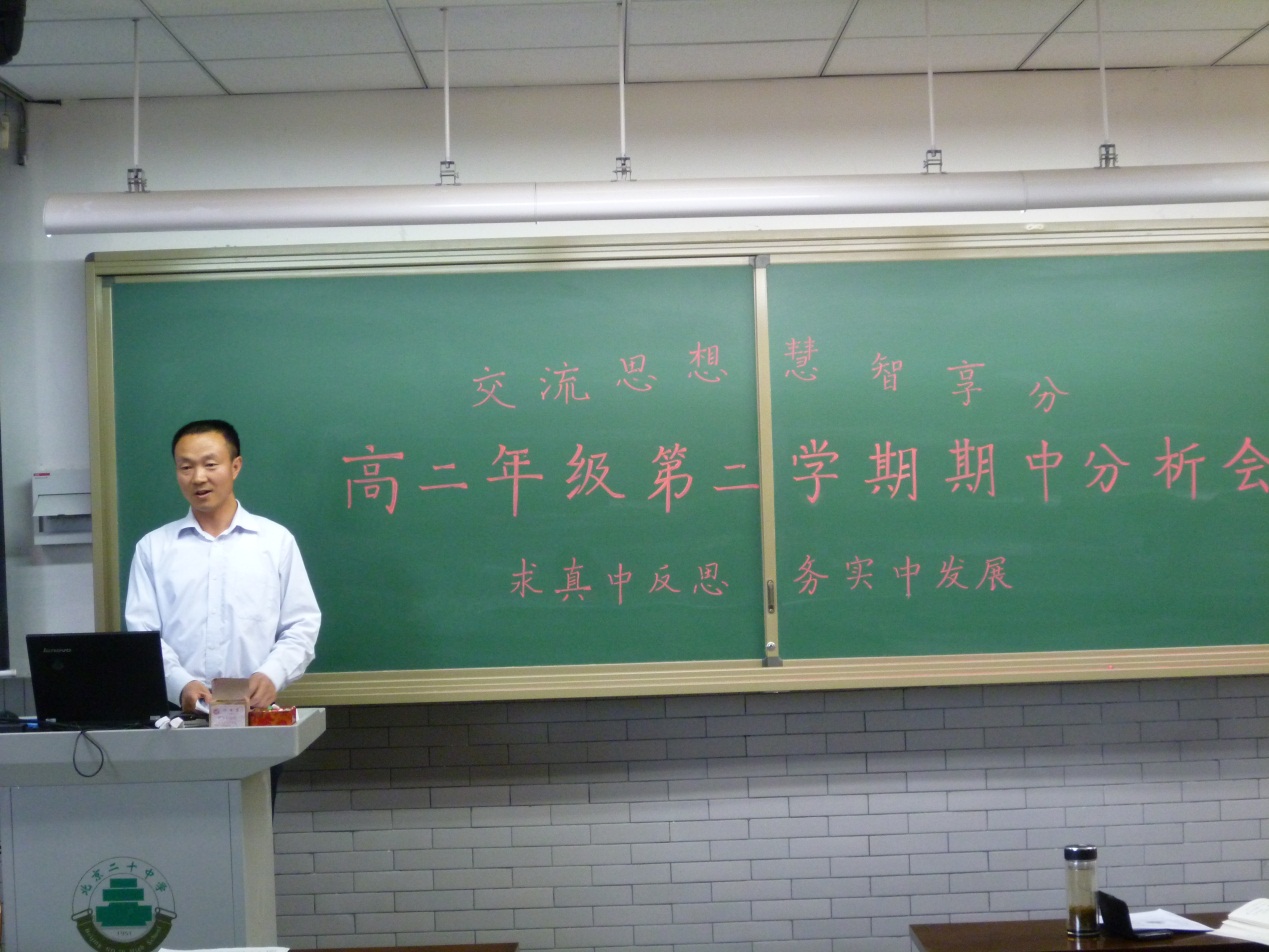 交流思想 慧智享分
高二年级第二学期期中分析会
求真中反思 务实中发展
lenovo
北京二十中学
1951